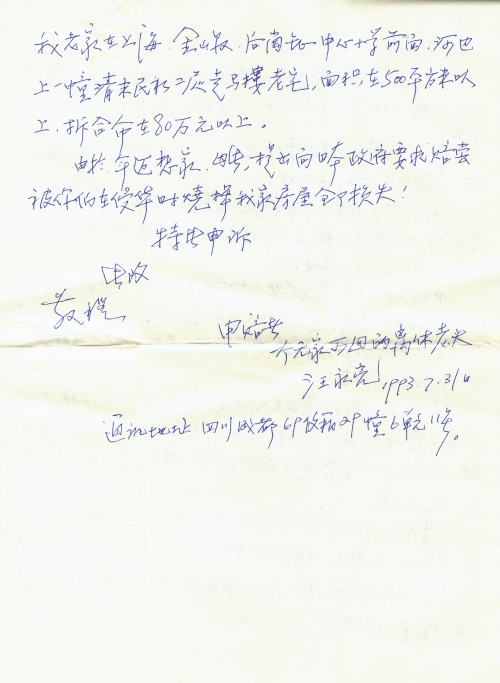 我老家在上海、金山县、后岗镇中心小学前面、河边
上一幢清末民初二层走马楼老宅，面积在500平方米以
上，折合币在80万元以上。
由於年迈想家、因此，提出向日本政府要求赔尝
被你们在侵华时烧掉我家房屋全了损失！
特此申诉
此致
敬礼
申诉者
一个无家可归的离休老头
汪永亮 1993.7.31日
通讯地址 四川成都69信箱29幢6单元11号。